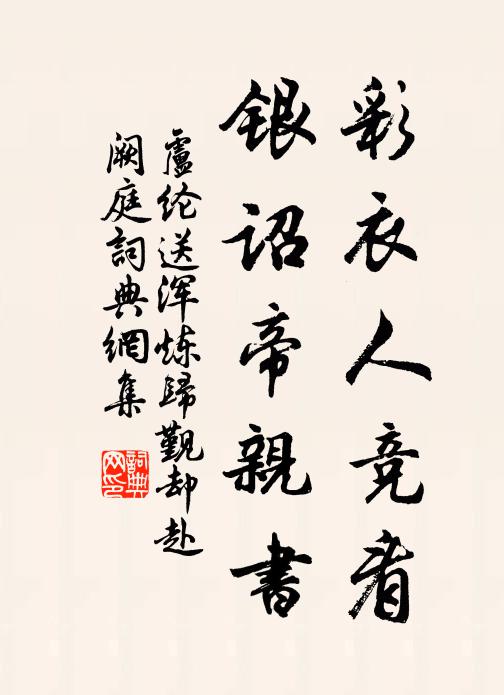 彩衣人竞看
银诏帝親書
盧纶送浑炼歸觐却赴
阙庭詞典網集
詞典网印